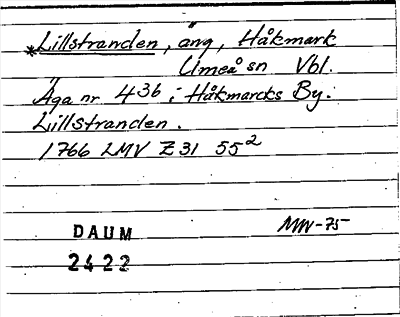 *Lillstranden, äng, Håkmark
Umeå sn Vbl.
Äga nr 436 i Håkmarcks By.
Lillstranden.
1766 LMV Z31 55²
MW-75
DAUM
2422